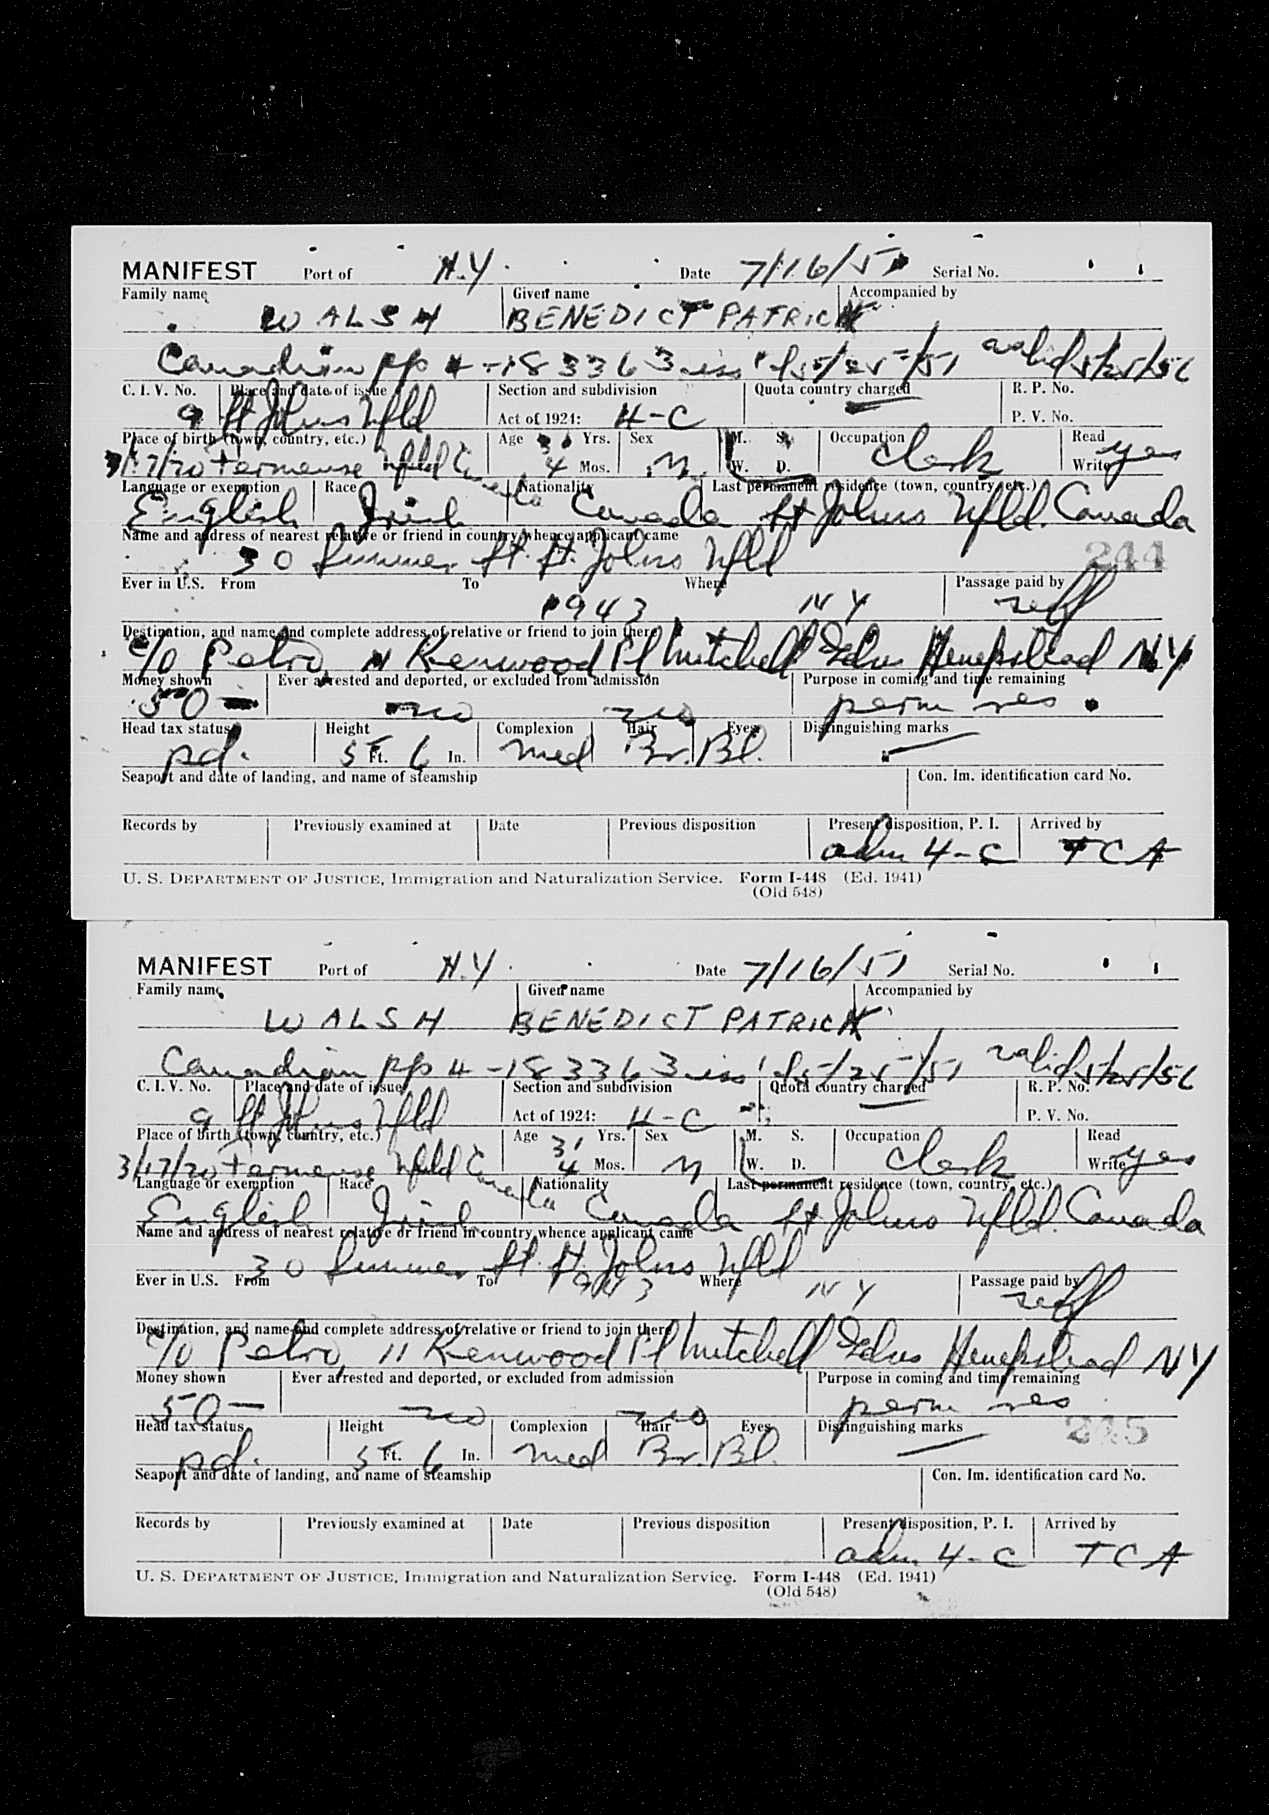 MANIFEST Port of N.Y. Date 7/16/51 Serial No.
Family name Given name Accompanied by
WALSH BENEDICT PATRICK
Canadian pp 4-183363 iss'd 5/25/51 valid 5/25/56
C. I. V. No. Place and date of issue Section and subdivision Quota country charged R. P. No.
9 St Johns Nfld Act of 1924: 4-C — P. V. No.
Place of birth (town, country, etc.) Age 31 Yrs. Sex M. S. Occupation Read
3/17/20 Fermeuse Nfld Canada 4 Mos. M W. D. Clerk Write yes
Language or exemption Race Nationality Last permanent residence (town, country, etc.)
English Irish Canada St Johns Nfld. Canada
Name and address of nearest relative or friend in country whence applicant came
30 Summer St. St. Johns Nfld 244
Ever in U.S. From To Where Passage paid by
1943 NY self
Destination, and name and complete address of relative or friend to join there
c/o Petro, 11 Kenwood Pl Mitchell Hempstead NY
Money shown Ever arrested and deported, or excluded from admission Purpose in coming and time remaining
50— no no perm res
Head tax status Height Complexion Hair Eyes Distinguishing marks
pd. 5 Ft. 6 In. med Br. Bl. —
Seaport and date of landing, and name of steamship Con. Im. identification card No.
Records by Previously examined at Date Previous disposition Present disposition, P. I. Arrived by
adm 4-C TCA
U. S. DEPARTMENT OF JUSTICE, Immigration and Naturalization Service. Form I-448 (Ed. 1941)
(Old 548)
MANIFEST Port of N.Y. Date 7/16/51 Serial No.
Family name Given name Accompanied by
WALSH BENEDICT PATRICK
Canadian pp 4-183363 iss'd 5/25/51 valid 5/25/56
C. I. V. No. Place and date of issue Section and subdivision Quota country charged R. P. No.
9 St Johns Nfld Act of 1924: 4-C — P. V. No.
Place of birth (town, country, etc.) Age 31 Yrs. Sex M. S. Occupation Read
3/17/20 Fermeuse Nfld Canada 4 Mos. M W. D. Clerk Write yes
Language or exemption Race Nationality Last permanent residence (town, country, etc.)
English Irish Canada St Johns Nfld. Canada
Name and address of nearest relative or friend in country whence applicant came
30 Summer St. St. Johns Nfld
Ever in U.S. From To 1943 Where NY Passage paid by
self
Destination, and name and complete address of relative or friend to join there
c/o Petro, 11 Kenwood Pl Mitchell Hempstead NY
Money shown Ever arrested and deported, or excluded from admission Purpose in coming and time remaining
50— no no perm res
Head tax status Height Complexion Hair Eyes Distinguishing marks 245
pd. 5 Ft. 6 In. med Br. Bl. —
Seaport and date of landing, and name of steamship Con. Im. identification card No.
Records by Previously examined at Date Previous disposition Present disposition, P. I. Arrived by
adm 4-C TCA
U. S. DEPARTMENT OF JUSTICE, Immigration and Naturalization Service. Form I-448 (Ed. 1941)
(Old 548)